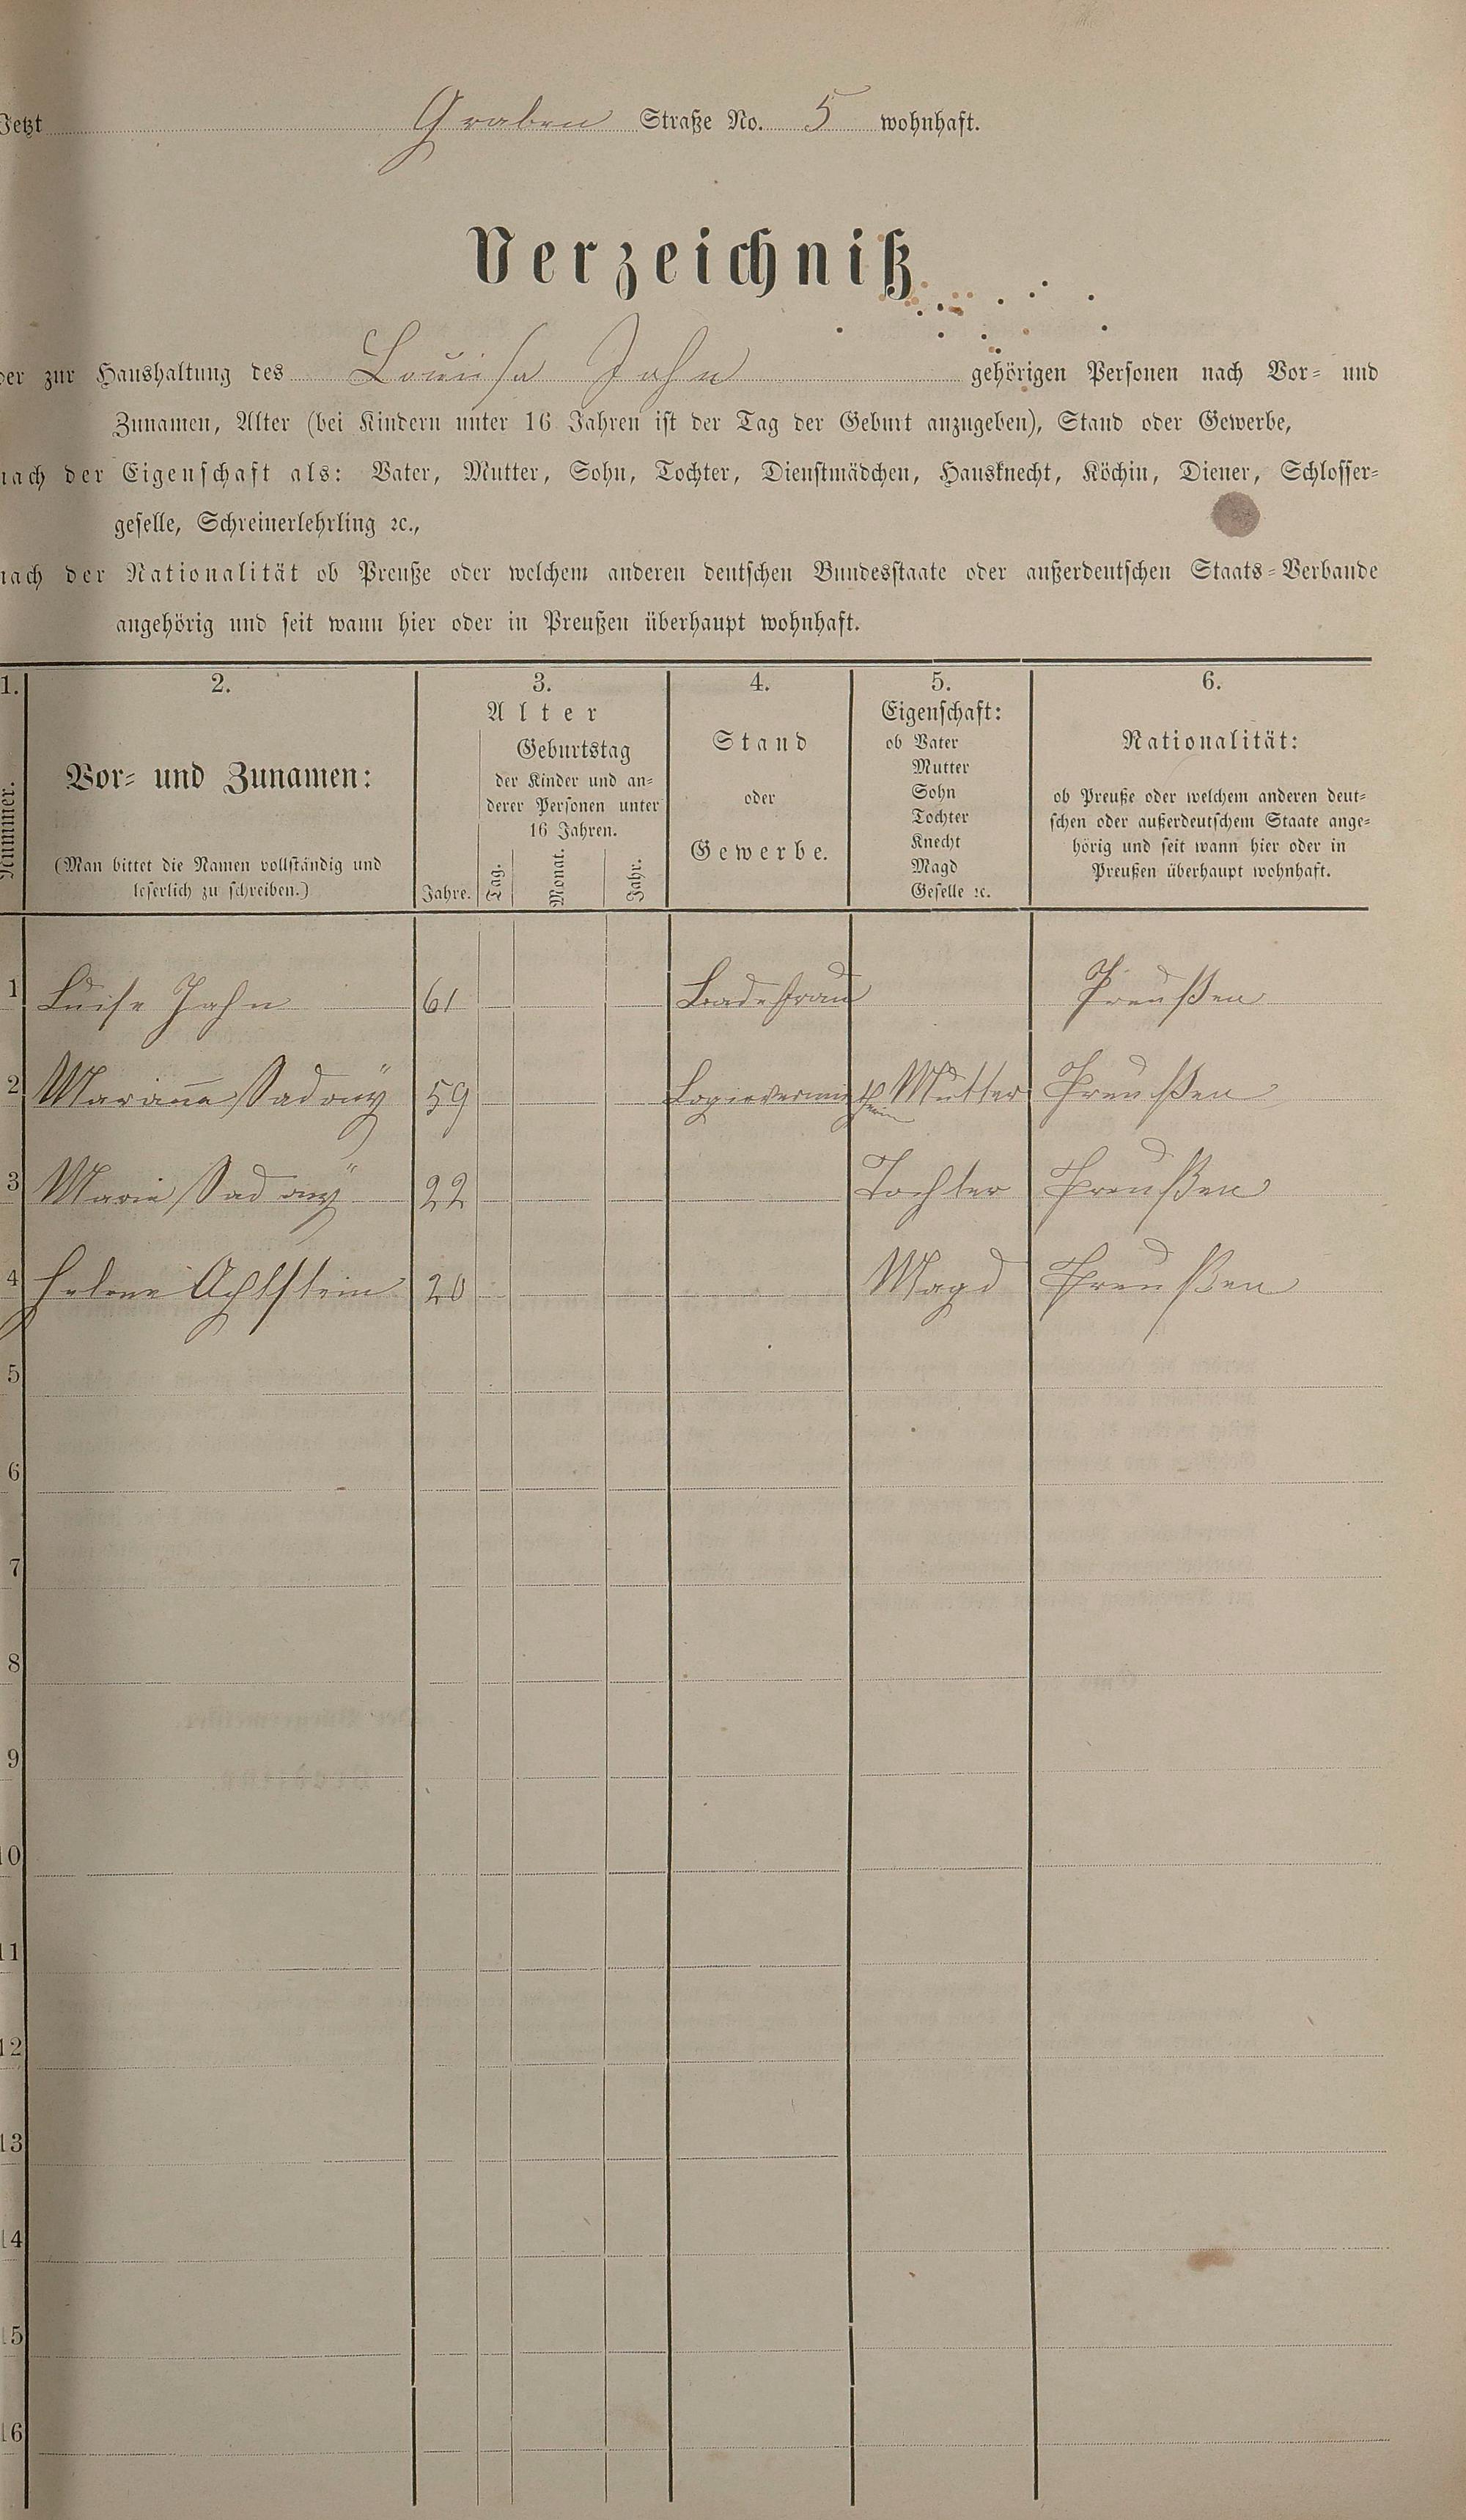 Jetzt Graben Straße No. 5 wohnhaft.
Verzeichniß
der zur Haushaltung des Louisa Jahn gehörigen Personen nach Vor- und
Zunamen, Alter (bei Kindern unter 16 Jahren ist der Tag der Geburt anzugeben), Stand oder Gewerbe,
nach der Eigenschaft als: Vater, Mutter, Sohn, Tochter, Dienstmädchen, Hausknecht, Köchin, Diener, Schlosser-
geselle, Schreinerlehrling ꝛc.,
nach der Nationalität ob Preuße oder welchem anderen deutschen Bundesstaate oder außerdeutschen Staats-Verbande
angehörig und seit wann hier oder in Preußen überhaupt wohnhaft.
1.
Nummer.
2.
Vor- und Zunamen:
(Man bittet die Namen vollständig und
leserlich zu schreiben.)
3.
Alter
Jahre.
Geburtstag
der Kinder und an-
derer Personen unter
16 Jahren.
Tag. Monat. Jahr.
4.
Stand
oder
Gewerbe.
5.
Eigenschaft:
ob Vater
Mutter
Sohn
Tochter
Knecht
Magd
Geselle ꝛc.
6.
Nationalität:
ob Preuße oder welchem anderen deut-
schen oder außerdeutschem Staate ange-
hörig und seit wann hier oder in
Preußen überhaupt wohnhaft.
1 Luise Jahn 61 Badefrau Preußen
2 Marian̄a Sadonÿ 59 Logievermietherin Mutter Preußen
3 Marie Sadonÿ 22 Tochter Preußen
4 Helene Achtstein 20 Magd Preußen
5
6
7
8
9
10
11
12
13
14
15
16